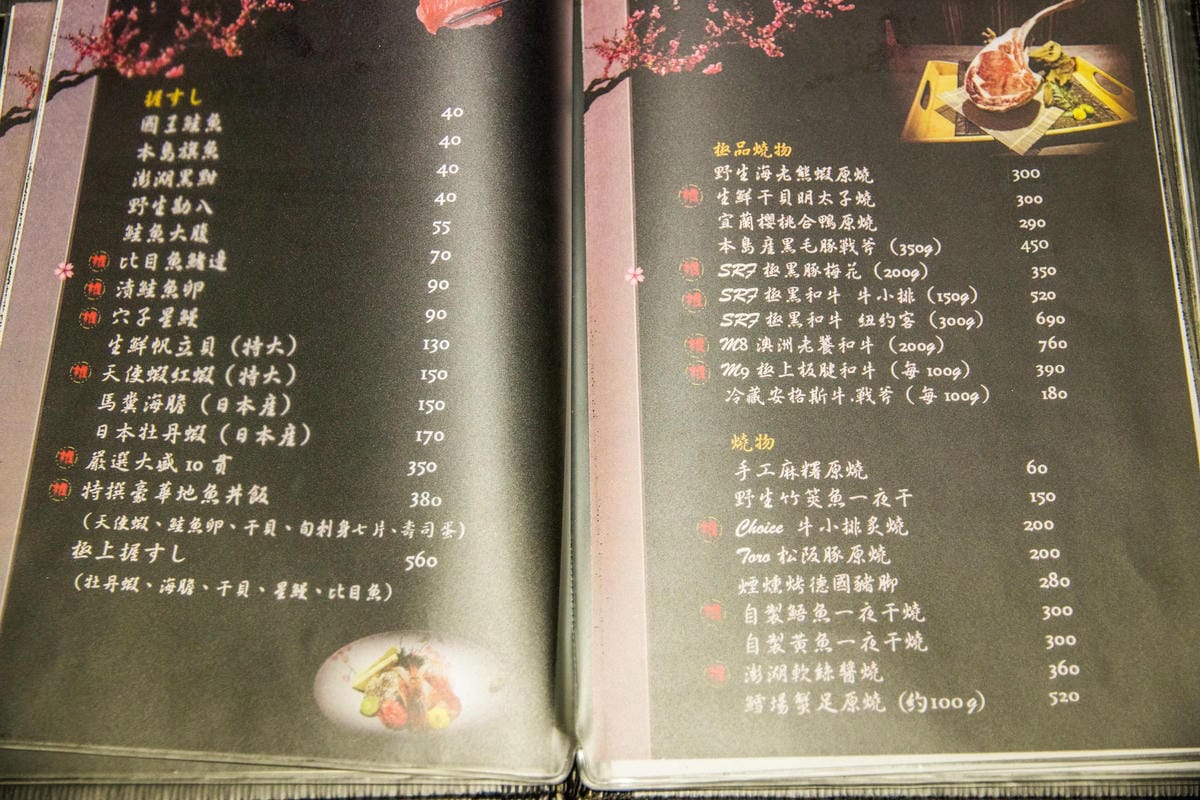 握すし
國王鮭魚 40
本島旗魚 40
澎湖黑點 40
野生勘八 40
鮭魚大腹 55
推 比目魚鰭邊 70
推 漬鮭魚卵 90
推 穴子星鰻 90
生鮮帆立貝（特大） 130
推 天使蝦紅蝦（特大） 150
馬糞海膽（日本産） 150
日本牡丹蝦（日本産） 170
推 嚴選大盛 10 貫 350
推 特撰豪華地魚丼飯 380
（天使蝦、鮭魚卵、干貝、旬刺身七片、壽司蛋）
極上握すし 560
（牡丹蝦、海膽、干貝、星鰻、比目魚）
極品燒物
野生海老熊蝦原燒 300
推 生鮮干貝明太子燒 300
宜蘭櫻桃合鴨原燒 290
本島産黑毛豚戰斧（350g） 450
推 SRF 極黑豚梅花（200g） 350
推 SRF 極黑和牛 牛小排（150g） 520
SRF 極黑和牛 紐約客（300g） 690
推 M8 澳洲老饕和牛（200g） 760
推 M9 極上板腱和牛（每 100g） 390
冷藏安格斯牛.戰斧（每 100g） 180
燒物
手工麻糬原燒 60
野生竹筴魚一夜干 150
推 Choice 牛小排炙燒 200
Toro 松阪豚原燒 200
煙燻烤德國豬腳 280
推 自製鯃魚一夜干燒 300
自製黃魚一夜干燒 300
推 澎湖軟絲醬燒 360
鱈場蟹足原燒（約100g） 520